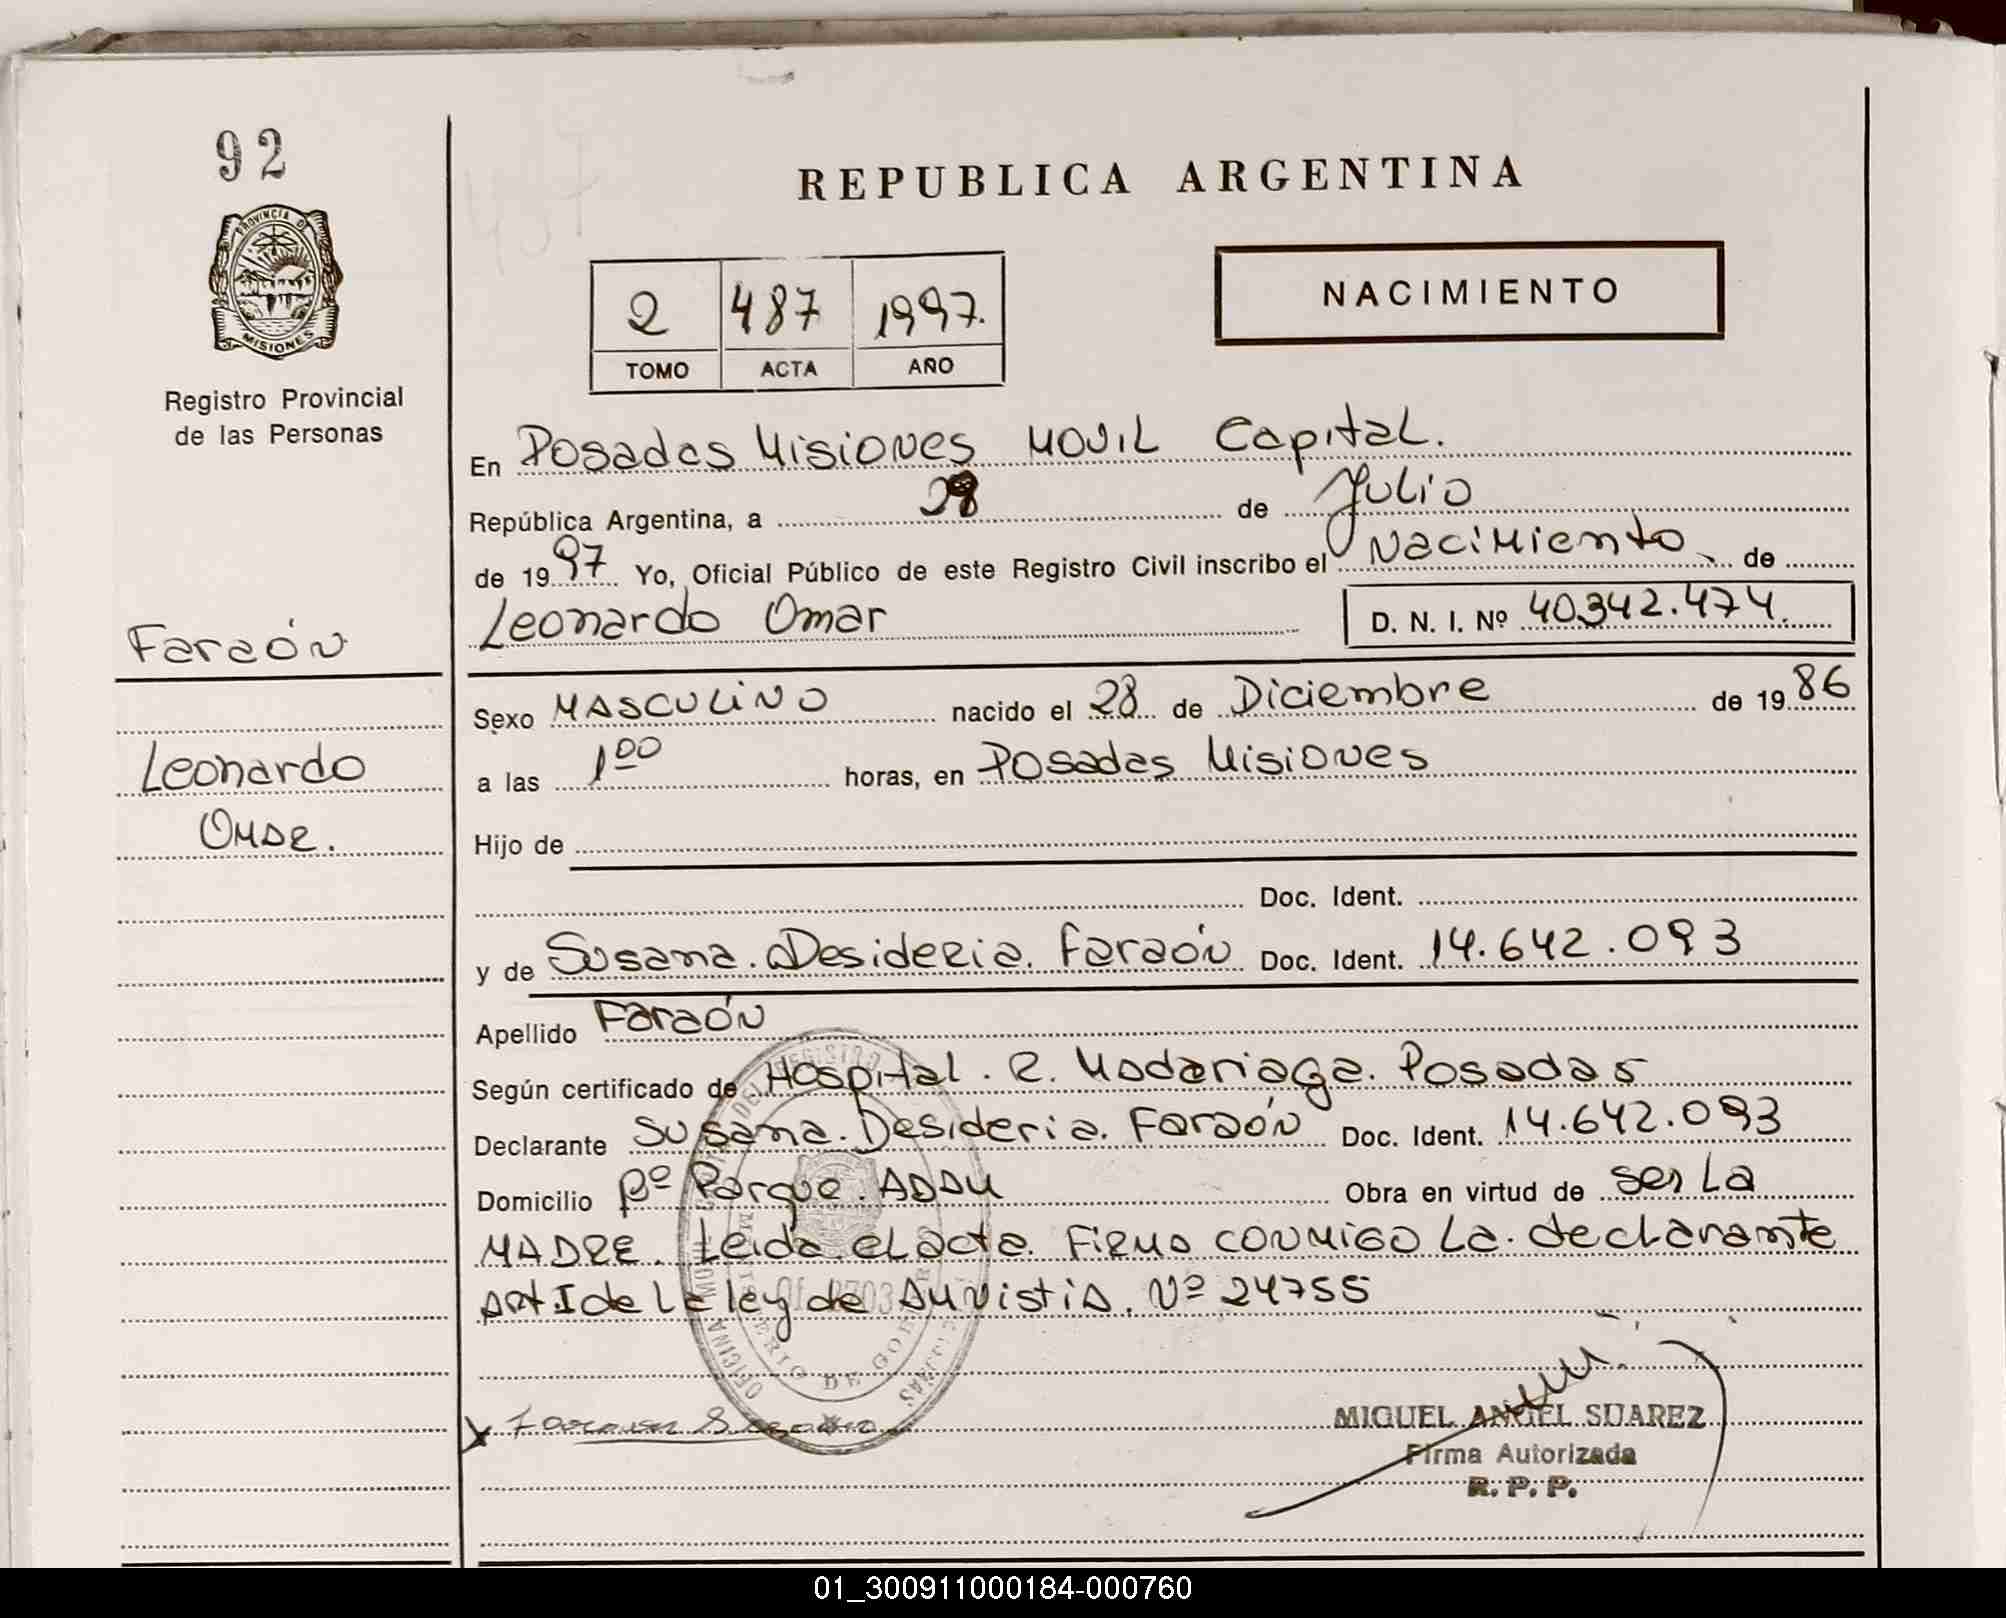 92
PROVINCIA DE
MISIONES
Registro Provincial
de las Personas
REPUBLICA ARGENTINA
2 487 1997.
TOMO ACTA AÑO
NACIMIENTO
En Posadas Misiones MOVIL Capital.
República Argentina, a 28 de Julio
de 1997 Yo, Oficial Público de este Registro Civil inscribo el Nacimiento de
Leonardo Omar D. N. I. Nº 40.342.474.
Faraón
Sexo MASCULINO nacido el 28 de Diciembre de 1986
Leonardo
Omar.
a las 1 00 horas, en Posadas Misiones
Hijo de
Doc. Ident.
y de Susana Desideria Faraón Doc. Ident. 14.642.093
Apellido Faraón
Según certificado de Hospital. R. Madariaga. Posadas
Declarante Susana. Desideria. Faraón Doc. Ident. 14.642.093
Domicilio Bº Parque. ADAM Obra en virtud de ser La
MADRE. Leida el acta. Firma conmigo La declarante
Art I de La ley de Amnistia. Nº 24755
MINISTERIO DE GOBIERNO
MIGUEL ANGEL SUAREZ
Firma Autorizada
R. P. P.
01_300911000184-000760